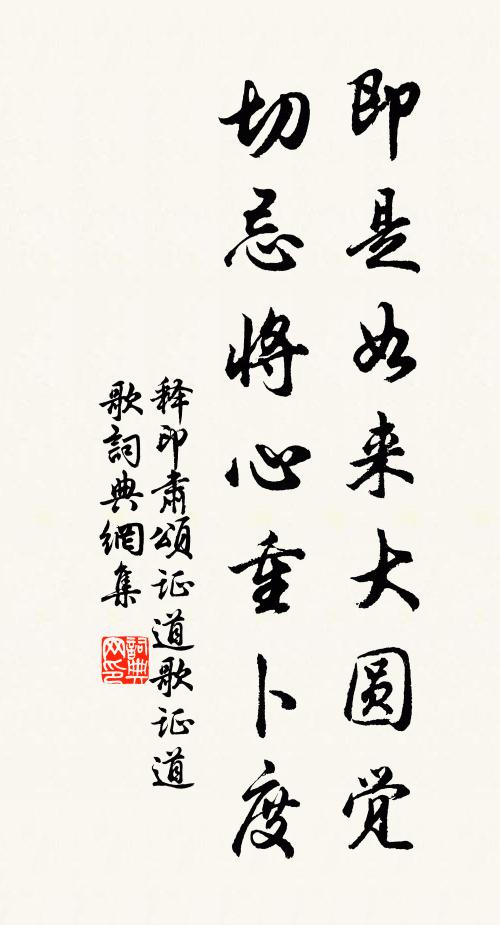 即是如来大圆觉
切忌将心重卜度
释印肃颂证道歌证道
歌詞典網集
詞典网印